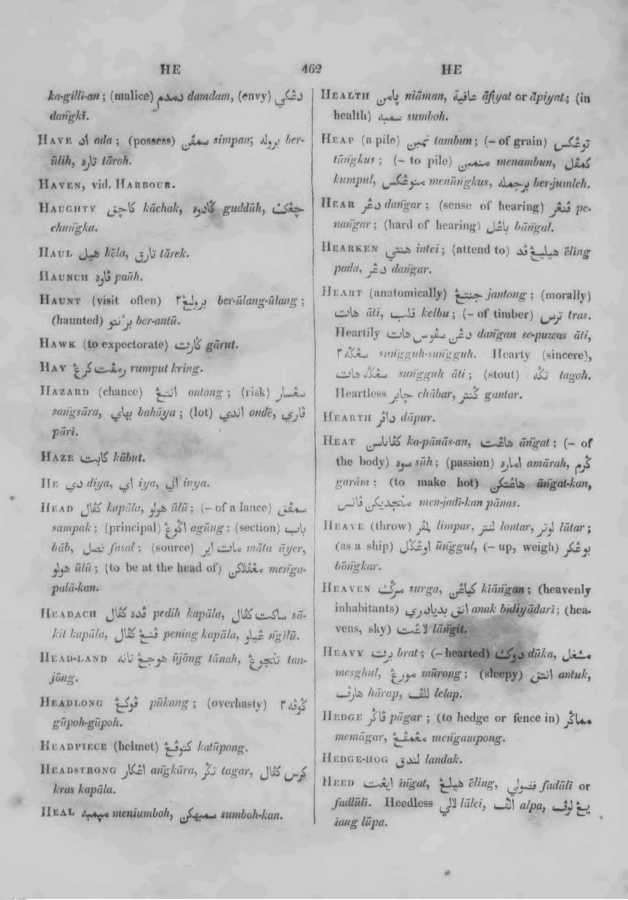 HE 462 HE
ka-gilli-an; (malice) دمدم damdam, (envy) دڠكي
dangkī.
HAVE اد ada; (possess) سمڤن simpan; بروله ber-
ūlih, تاره tāroh.
HAVEN, vid. HARBOUR.
HAUGHTY كاچق kāchak, كادوه guddūh, چڠكق
chungka.
HAUL هيل hēla, تارق tārek.
HAUNCH ڤاوه paūh.
HAUNT (visit often) برولڠ٢ ber-ūlang-ūlang;
(haunted) برنتو ber-antū.
HAWK (to expectorate) كارت gārut.
HAY رمڤت كرڠ rumput kring.
HAZARD (chance) انتڠ ontong; (risk) سڠسار
sangsāra, بهاي bahāya; (lot) اندي ondē, ڤاري
pāri.
HAZE كابت kābut.
HE دي diya, اي iya, اني inya.
HEAD كڤال kapāla, هولو ūlū; (– of a lance) سمڤق
sampak; (principal) اڬوڠ agūng; (section) باب
bāb, فصل fasal; (source) مات اير māta āyer,
هولو ūlū; (to be at the head of) مڠڤلاكن menga-
palā-kan.
HEADACH ڤده كڤال pedih kapāla, ساكت كڤال sā-
kit kapāla, ڤنڠ كڤال pening kapāla, ڠيلو ngilū.
HEAD-LAND هوجڠ تانه ūjōng tānah, تنجوڠ tan-
jōng.
HEADLONG ڤوكڠ pūkang; (overhasty) كوڤه٢
gūpoh-gūpoh.
HEADPIECE (helmet) كتوڤڠ katūpong.
HEADSTRONG اڠكار angkāra, تكر tagar, كرس كڤال
kras kapāla.
HEAL ميمبه meniumboh, سمبهكن sumboh-kan.
HEALTH يامن niāman, عافية āfiyat or āpiyat; (in
health) سمبه sumboh.
HEAP (a pile) تمبن tambun; (– of grain) توڠكس
tūngkus; (– to pile) منمبن menambun, كمڤل
kumpul, منوڠكس menūngkus, برجمله ber-jumleh.
HEAR دڠر dangar; (sense of hearing) ڤنڠر pe-
nangar; (hard of hearing) باڠل bāngal.
HEARKEN هنتي intei; (attend to) هيليڠ ڤد ēling
pada, دڠر dangar.
HEART (anatomically) جنتڠ jantong; (morally)
هات āti, قلب kelbu; (– of timber) ترس tras.
Heartily دڠن سڤوس هات dangan se-puwas āti,
سڠڬه٢ sungguh-sungguh. Hearty (sincere),
سڠڬه هات sungguh āti; (stout) تڬه tagoh.
Heartless چابر chābar, گنتر gantar.
HEARTH داڤر dāpur.
HEAT كڤاناسن ka-pānās-an, هاڠت āngat; (– of
the body) سوه sūh; (passion) اماره amārah, گرم
garām; (to make hot) هاڠتكن āngat-kan,
منجديكن ڤانس men-jadi-kan pānas.
HEAVE (throw) لمڤر limpar, لنتر lontar, لوتر lūtar;
(as a ship) اوڠڬل ūnggul, (– up, weigh) بوڠكر
bōngkar.
HEAVEN سرڬ surga, كياڠن kiāngan; (heavenly
inhabitants) انق بديادري anak bidiyādari; (hea-
vens, sky) لاڠت lāngit.
HEAVY برت brat; (– hearted) دوك dūka, مشغل
mesghul, مورڠ mūrong; (sleepy) انتق antuk,
هارف hārap, للڤ lelap.
HEDGE ڤاڬر pāgar; (to hedge or fence in) مماڬر
memāgar, مڠمڤڠ mengampong.
HEDGE-HOG لندق landak.
HEED ايڠت īngat, هيليڠ ēling, فضولي fadūli or
fadlūli. Heedless لالي lālei, الڤ alpa, يڠ لوڤ
iang lūpa.